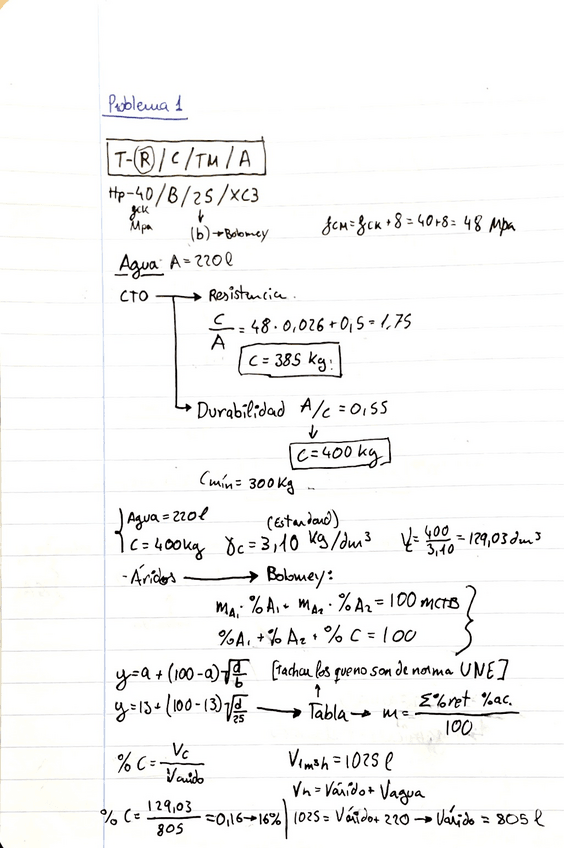 Problema 1
T-R/C/TM/A
Hp-40/B/25/XC3
fck
Mpa
(b)→Bolomey
fcm=fck+8=40+8=48 Mpa
Agua: A=220l
CTO → Resistencia.
C/A = 48·0,026+0,5=1,75
C=385 kg.
Durabilidad A/c=0,55
↓
C=400 kg
Cmín=300Kg
Agua=220l
(Estandard)
C=400kg γc=3,10 kg/dm³ Vc=400/3,10=129,03 dm³
-Áridos → Bolomey:
mA₁·%A₁+mA₂·%A₂=100 mCTB
%A₁+%A₂+%C=100
y=a+(100-a)√d/b [Tachar los que no son de norma UNE]
y=13+(100-13)√d/25 → Tabla → m=Σ%ret %ac./100
%C=Vc/Várido V1m³h=1025 l
Vh=Várido+Vagua
%C=129,03/805=0,16→16% 1025=Várido+220→Várido=805 l